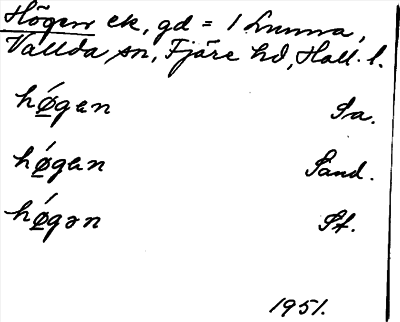 Högen ek, gd = 1 Lunna,
Vallda sn, Fjäre hd, Hall. l.
hǿgen Sa.
hǿgen Sand.
hǿgən St.
1951.